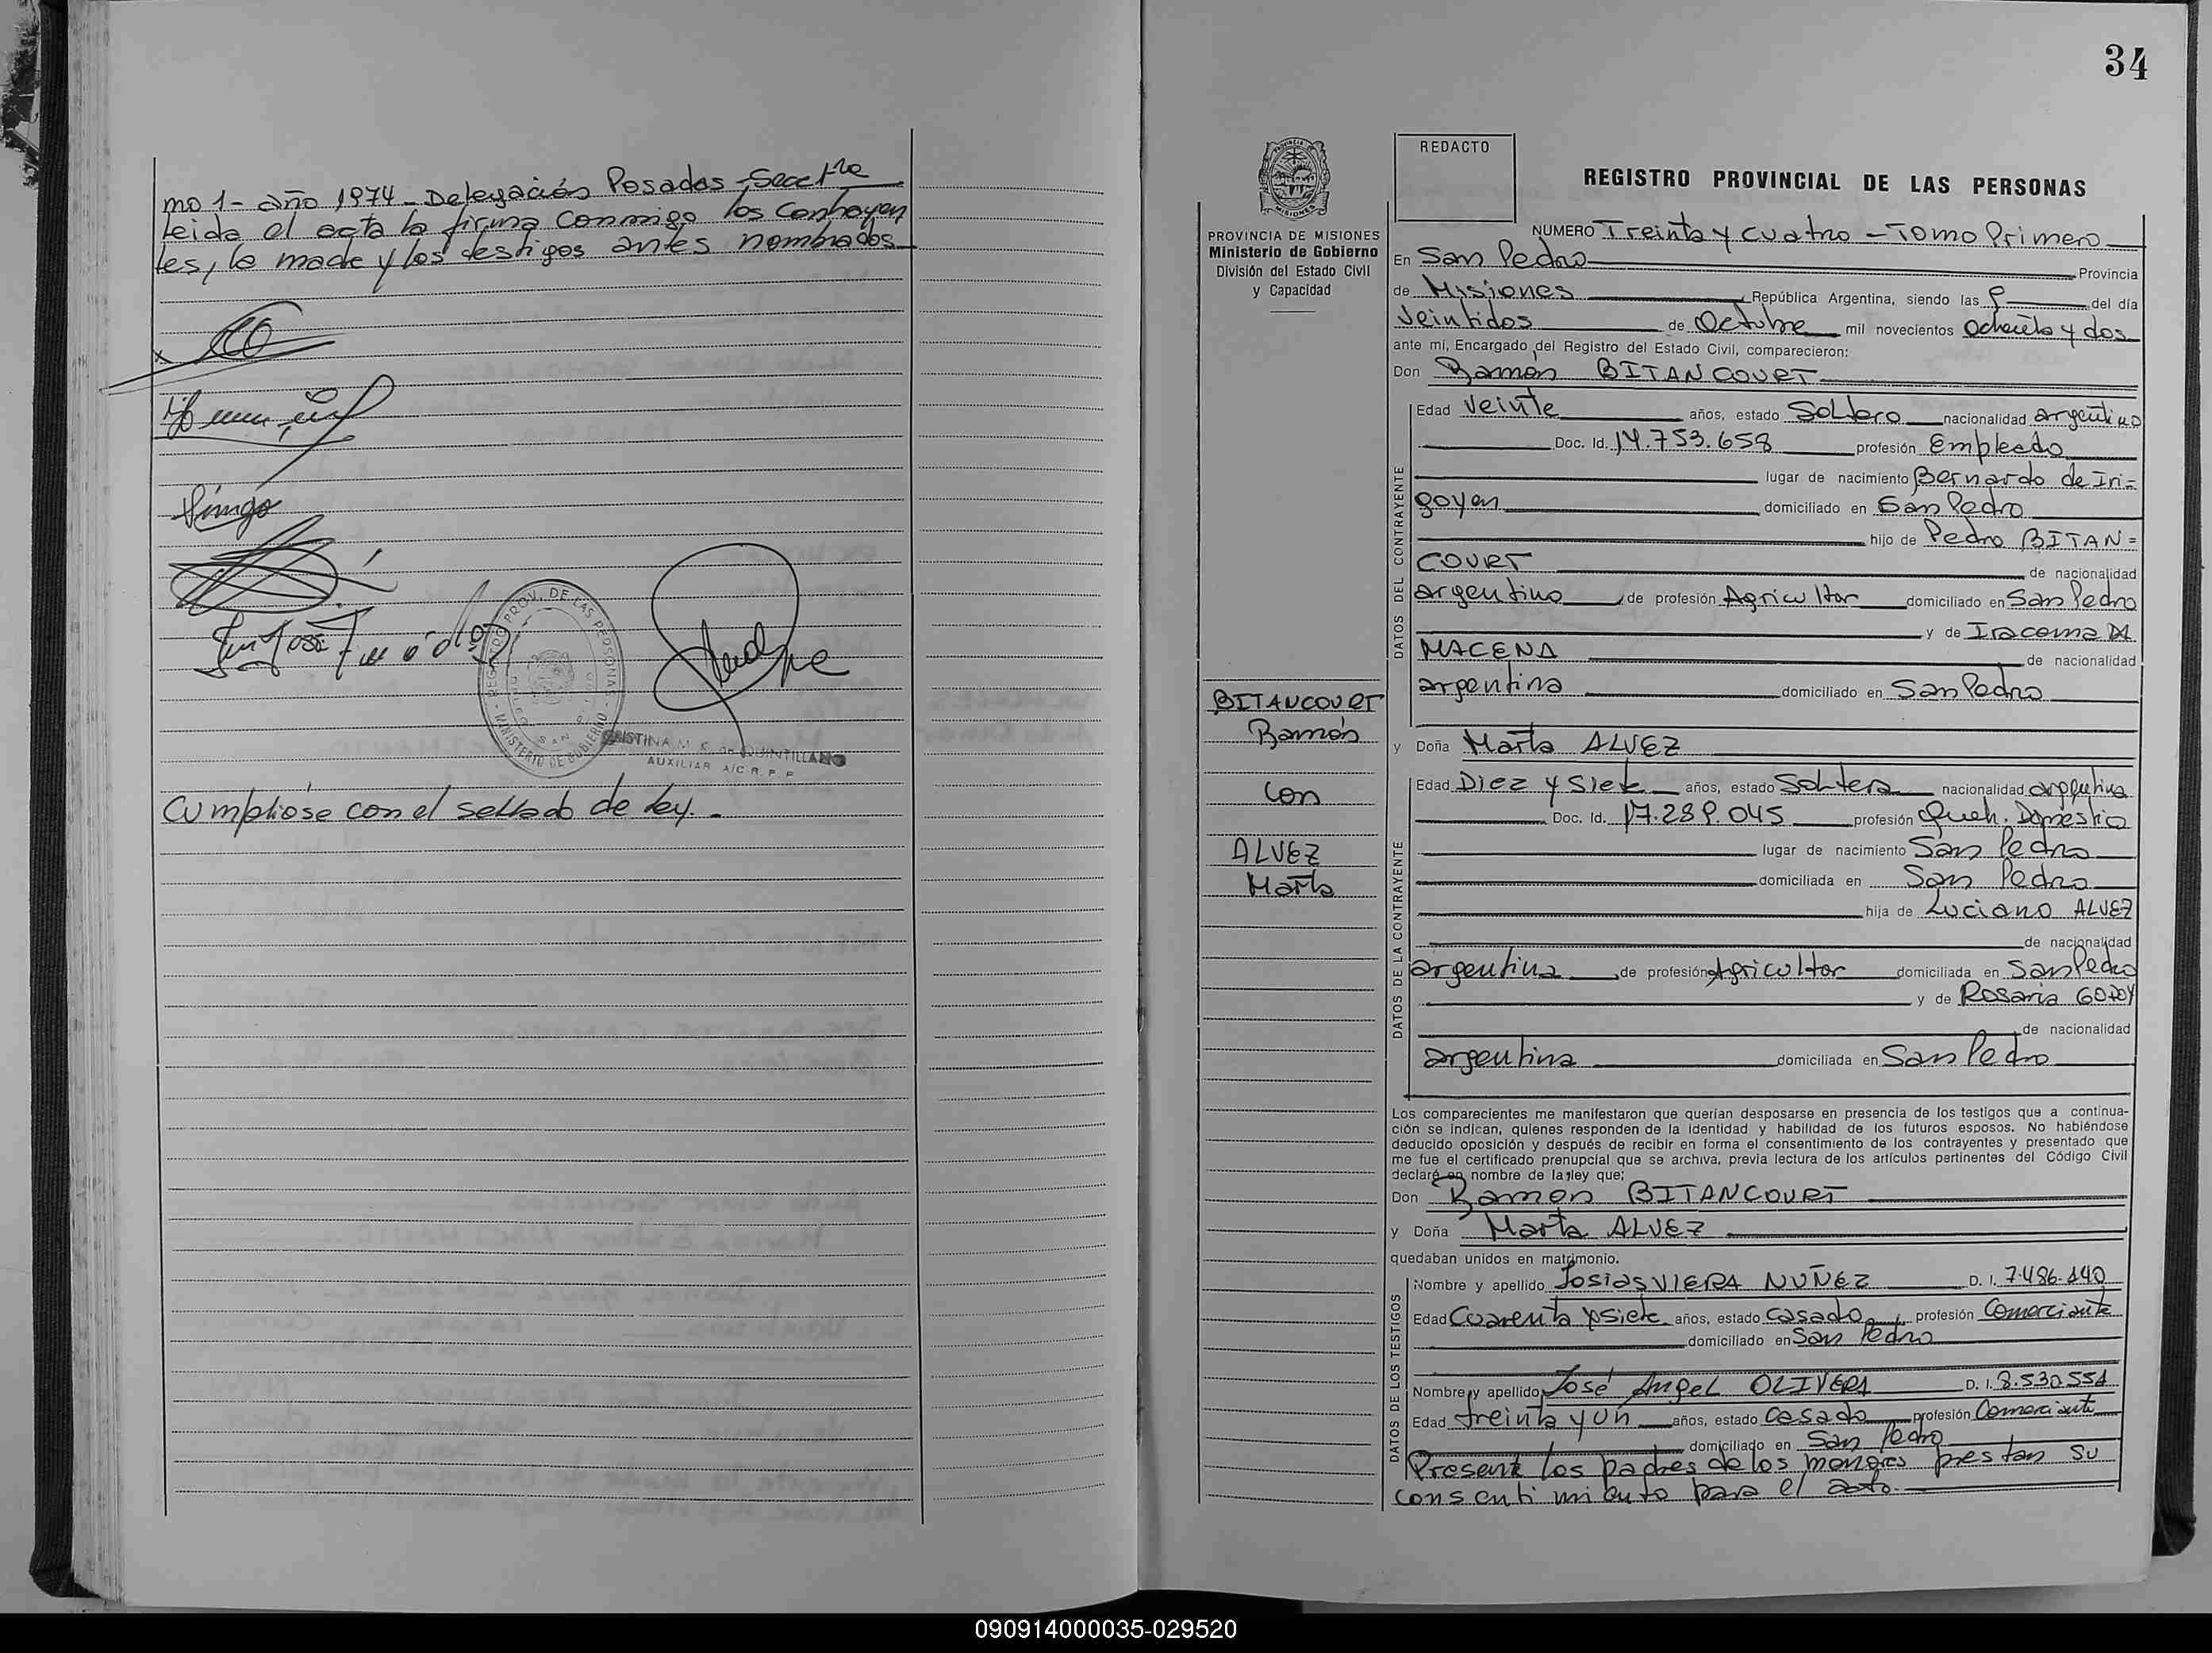 mo 1 - año 1974 - Delegación Posadas - Secc 1ra
leida el acta la firma conmigo los contrayen
tes, la madre y los testigos antes nombrados
REGISTRO PROV. DE LAS PERSONAS
MINISTERIO DE GOBIERNO
CRISTINA M. K. de QUINTILLANO
AUXILIAR A/C R. P. P.
Cumpliose con el sellado de ley. -
34
PROVINCIA DE MISIONES
Ministerio de Gobierno
División del Estado Civil
y Capacidad
BITANCOURT
Ramón
con
ALVEZ
Marta
REDACTO
REGISTRO PROVINCIAL DE LAS PERSONAS
NUMERO Treinta y cuatro - Tomo Primero
En San Pedro Provincia
de Misiones República Argentina, siendo las 9 del día
Veintidos de Octubre mil novecientos ochenta y dos
ante mí, Encargado del Registro del Estado Civil, comparecieron:
Don Ramon BITANCOURT
DATOS DEL CONTRAYENTE
Edad Veinte años, estado Soltero nacionalidad argentino
Doc. Id. 14.753.658 profesión Empleado
lugar de nacimiento Bernardo de Iri=
goyen domiciliado en San Pedro
hijo de Pedro BITAN=
COURT de nacionalidad
argentino de profesión Agricultor domiciliado en San Pedro
y de Iracema DA
MACENA de nacionalidad
argentina domiciliado en San Pedro
y Doña Marta ALVEZ
DATOS DE LA CONTRAYENTE
Edad Diez y Siete años, estado Soltera nacionalidad argentina
Doc. Id. 17.289.045 profesión Queh. Domestico
lugar de nacimiento San Pedro
domiciliada en San Pedro
hija de Luciano ALVEZ
de nacionalidad
argentina de profesión Agricultor domiciliada en San Pedro
y de Rosaria GODOY
de nacionalidad
argentina domiciliada en San Pedro
Los comparecientes me manifestaron que querían desposarse en presencia de los testigos que a continua-
ción se indican, quienes responden de la identidad y habilidad de los futuros esposos. No habiéndose
deducido oposición y después de recibir en forma el consentimiento de los contrayentes y presentado que
me fue el certificado prenupcial que se archiva, previa lectura de los artículos pertinentes del Código Civil
declaré en nombre de la ley que:
Don Ramon BITANCOURT
y Doña Marta ALVEZ
quedaban unidos en matrimonio.
DATOS DE LOS TESTIGOS
Nombre y apellido Josias VIERA NUÑEZ D. I. 7.486.440
Edad Cuarenta y siete años, estado casado profesión Comerciante
domiciliado en San Pedro
Nombre y apellido José Angel OLIVERA D. I. 8.530.551
Edad treinta y un años, estado casado profesión Comerciante
domiciliado en San Pedro
Present los padres de los menores prestan su
consentimiento para el acto.
090914000035-029520